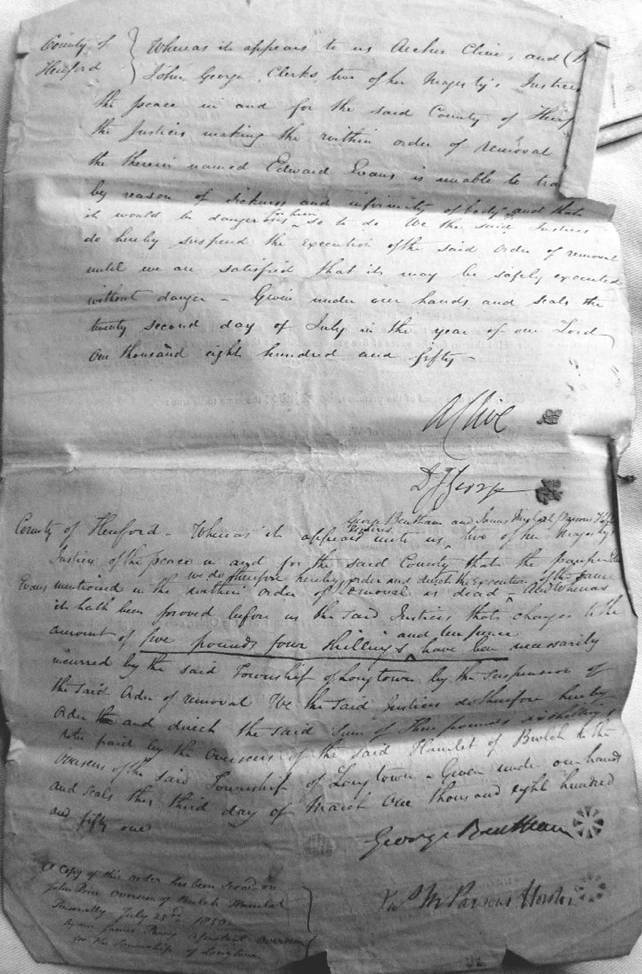 County of Hereford } Whereas it appears to us Archer Clive, and
John George, Clerks, two of her Majesty's Justices
the peace in and for the said County of
the Justices making the within order of removal
the therein named Edward Evans is unable to
by reason of sickness and infirmity of body and that
it would be dangerous for him so to do We the said Justices
do hereby suspend the execution of the said order of removal
until we are satisfied that it may be safely executed
without danger - Given under our hands and seals the
twenty second day of July in the year of our Lord
One thousand eight hundred and fifty -
A Clive
D J George
County of Hereford - Whereas it appears unto us George Bentham and James Parsons two of her Majesty's
Justices of the peace in and for the said County that the pauper
Evans mentioned in the within order of removal is dead we do therefore hereby order and direct the execution of the same And Whereas
it hath been proved before us the said Justices that charges to the
amount of five pounds four shillings and ten pence have been necessarily
incurred by the said Township of Longtown by the suspension of
the said Order of removal We the said Justices do therefore hereby
Order and direct the said Sum of pounds shillings
paid by the Overseers of the said Hamlet of Bwlch to the
Overseers of the said Township of Longtown - Given under our hands
and seals this third day of March One thousand eight hundred
and fifty one
George Bentham
Jas M Parsons
A Copy of this order has been served on
John Price Overseer of Bwlch Hamlet
July 23rd 1850
by me James
for the township of Longtown